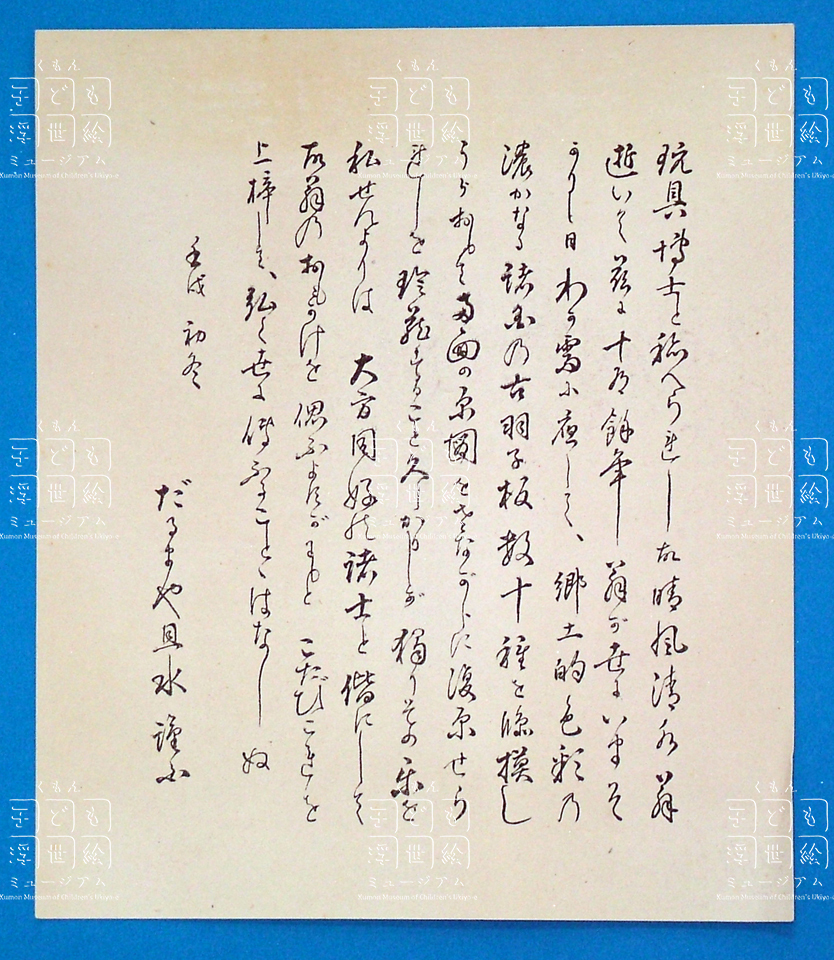 玩具博士と称へられし故晴風清水翁
逝いて茲に十有餘年 翁が世にいませ
日 わが需に応して、郷土的色彩の
濃かなる諸国の古羽子板数十種を臨摸し
両面の原図をさながらに復原せら
れしを珍蔵すること久しかりしが 独りその楽を
私せんよりは 大方同好の諸士と偕にして
故翁のおもかけを偲ふよすがにもと こたびこれを
上梓して、弘く世に傳ふることゝはなしぬ
壬戌 初冬
だるまや 謹不
くもん
子ども
浮世絵
ミュージアム
Kumon Museum of Children's Ukiyo-e